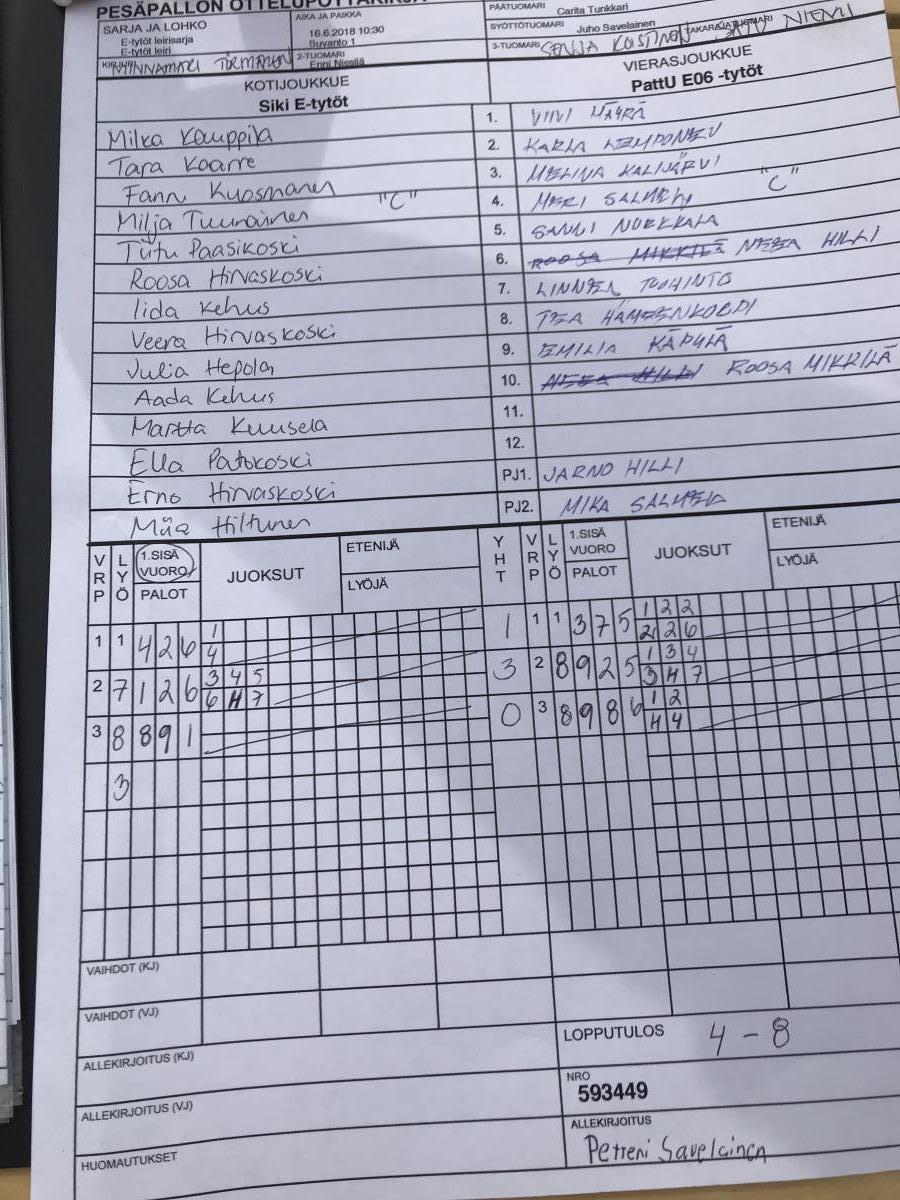 PESÄPALLON OTTELUPÖYTÄKIRJA
SARJA JA LOHKO
E-tytöt leirisarja
E-tytöt leiri
AIKA JA PAIKKA
16.6.2018 10:30
Suvanto 1
PÄÄTUOMARI Carita Tunkkari
SYÖTTÖTUOMARI Juho Savelainen
KIRJURI MINNAMARI TÖRMÄNEN
2-TUOMARI Enni Nissilä
3-TUOMARI SENJA KOISTINEN
TAKARAJATUOMARI SATU NIEMI
KOTIJOUKKUE
Siki E-tytöt
VIERASJOUKKUE
PattU E06 -tytöt
Milka Kamppila 1. VIIVI MÄYRÄ
Tara Kaarre 2. KARLA LEMPONEN
Fanni Kuosmanen 3. MELINA KALIJÄRVI
Milja Tuunainen "C" 4. MERI SALMELA "C"
Tiitu Paasikoski 5. SANNI NURKKALA
Roosa Hirvaskoski 6. ROOSA MIKKILÄ NEEA HILLI
Iida Kehus 7. LINNEA TUOHINTO
Veera Hirvaskoski 8. TEA HÄMEENKORPI
Julia Hepola 9. EMILIA KÄPYLÄ
Aada Kehus 10. NEEA HILLI ROOSA MIKKILÄ
Martta Kuusela 11.
Ella Patokoski 12.
Erno Hirvaskoski PJ1. JARNO HILLI
Miia Hiltunen PJ2. MIKA SALMELA
VRP LYÖ 1.SISÄ VUORO PALOT JUOKSUT ETENIJÄ LYÖJÄ YHT VRP LYÖ 1.SISÄ VUORO PALOT JUOKSUT ETENIJÄ LYÖJÄ
1 1 4 2 6 1 1 1 1 3 7 5 1 2 2
4 2 2 6
2 7 1 2 6 3 4 5 3 2 8 9 2 5 1 3 4
6 4 7 3 4 7
3 8 8 9 1 0 3 8 9 8 6 1 2
4 4
3
VAIHDOT (KJ)
VAIHDOT (VJ)
ALLEKIRJOITUS (KJ)
LOPPUTULOS 4 - 8
ALLEKIRJOITUS (VJ)
NRO
593449
HUOMAUTUKSET
ALLEKIRJOITUS
Petteri Savelainen